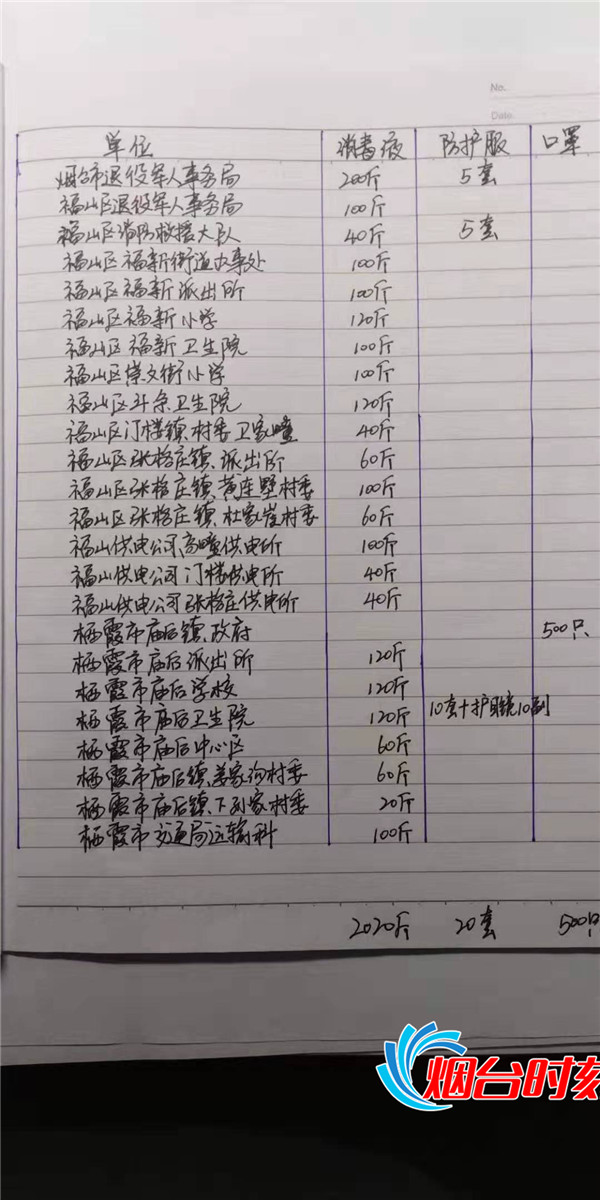 No.
Date.
单位 消毒液 防护服 口罩
烟台市退役军人事务局 200斤 5套
福山区退役军人事务局 100斤
福山区消防救援大队 40斤 5套
福山区福新街道办事处 100斤
福山区福新派出所 100斤
福山区福新小学 120斤
福山区福新卫生院 100斤
福山区崇文街小学 100斤
福山区斗余卫生院 120斤
福山区门楼镇、村委卫家疃 40斤
福山区张格庄镇、派出所 60斤
福山区张格庄镇、黄连墅村委 100斤
福山区张格庄镇、杜家崖村委 60斤
福山供电公司、高疃供电所 100斤
福山供电公司门楼供电所 40斤
福山供电公司张格庄供电所 40斤
栖霞市庙后镇、政府 500只
栖霞市庙后派出所 120斤
栖霞市庙后学校 120斤
栖霞市庙后卫生院 120斤 10套+护眼镜10副
栖霞市庙后中心区 60斤
栖霞市庙后镇、姜家沟村委 60斤
栖霞市庙后镇、下刘家村委 20斤
栖霞市交通局运输科 100斤
2020斤 20套 500只
烟台时刻